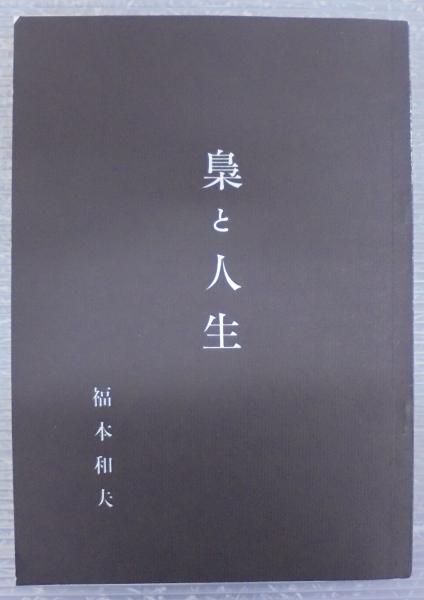 梟と人生
福本和夫